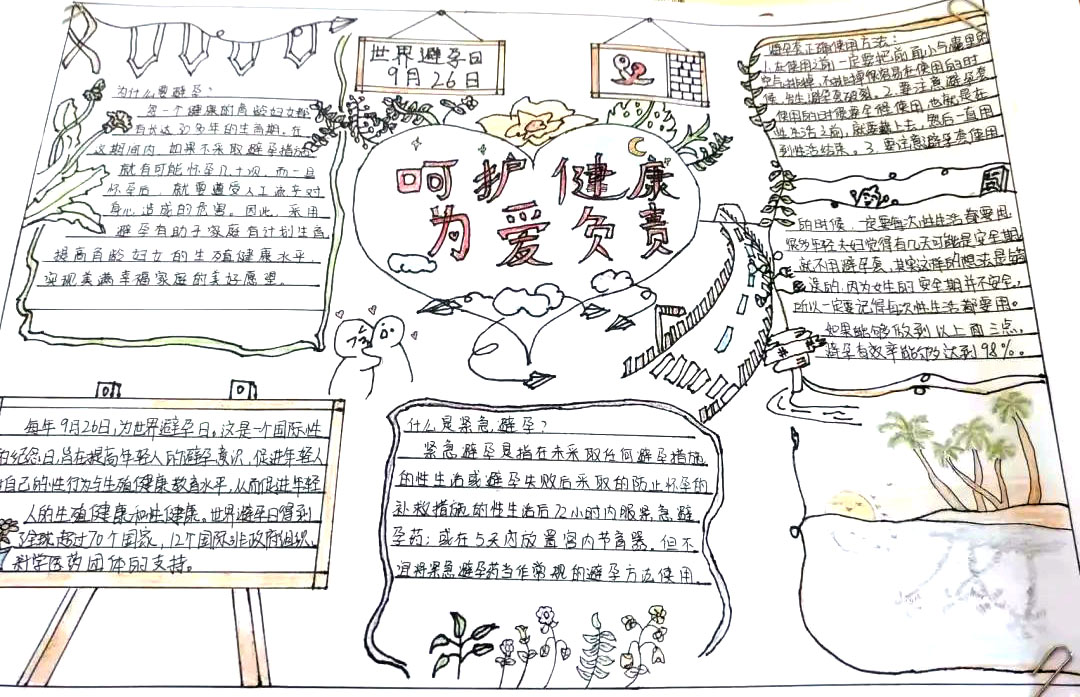 世界避孕日
9月26日
呵护健康
为爱负责
为什么要避孕？
每一个健康的育龄妇女都
有长达30多年的生育期。在
这期间内，如果不采取避孕措施
就有可能怀孕几十次，而一旦
怀孕后，就要遭受人工流产对
身心造成的危害。因此，采用
避孕有助于家庭有计划生育，
提高育龄妇女的生殖健康水平，
实现美满幸福家庭的美好愿望。
避孕套正确使用方法：
1.在使用之前一定要把前面小气囊里的
空气排掉，不排掉很容易在使用的时
候，发生避孕套破裂。2.要注意避孕套
使用的时候要全程使用，也就是在
性生活之前，就要戴上去，然后一直用
到性生活结束。3.要注意避孕套使用
的时候，一定要每次性生活都要用，
很多年轻夫妇觉得有几天可能是安全期，
就不用避孕套，其实这样的想法是错
误的，因为女性的安全期并不安全，
所以一定要记得每次性生活都要用。
如果能够做到以上面三点，
避孕有效率能够达到98%。
每年9月26日，为世界避孕日，这是一个国际性
的纪念日，旨在提高年轻人的避孕意识，促进年轻人
自己的性行为与生殖健康教育水平，从而促进年轻
人的生殖健康和性健康。世界避孕日得到
了全球超过70个国家，12个国际非政府组织，
科学医药团体的支持。
什么是紧急避孕？
紧急避孕是指在未采取任何避孕措施
的性生活或避孕失败后采取的防止怀孕的
补救措施，的性生活后72小时内服紧急避
孕药；或在5天内放置宫内节育器。但不
可将紧急避孕药当作常规的避孕方法使用。